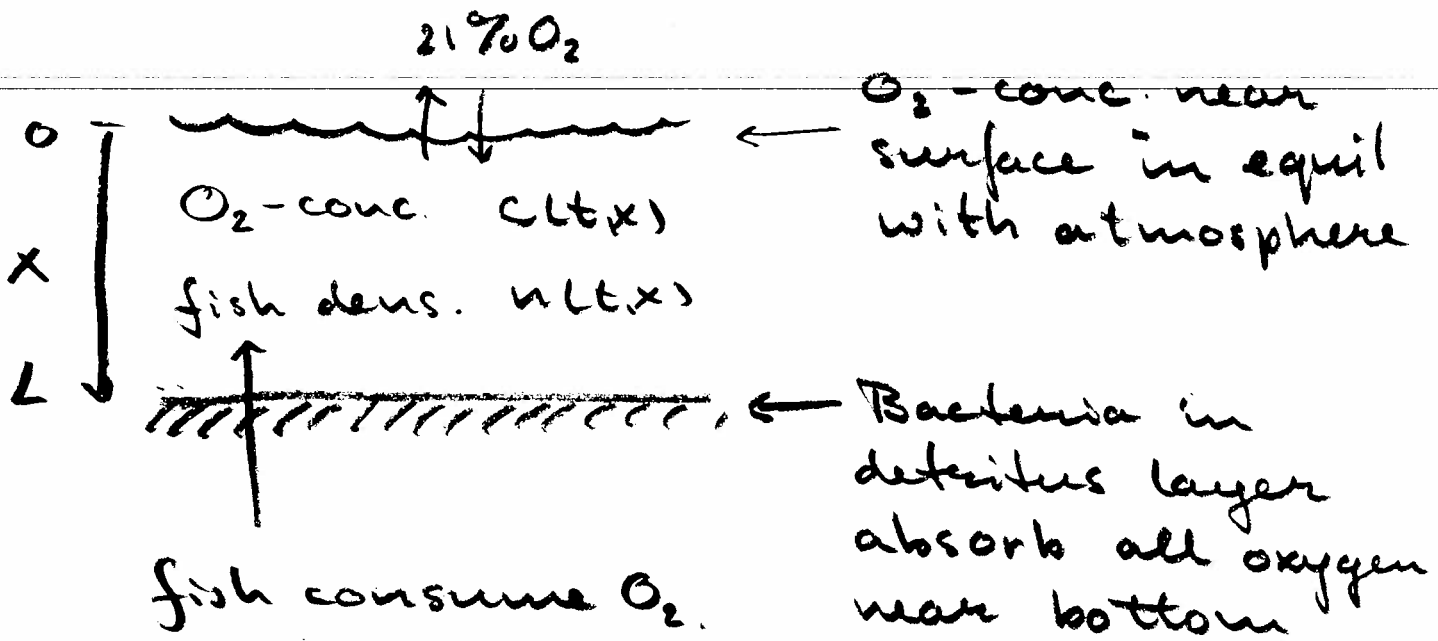 21% O₂
O₂-conc. near
surface in equil
with atmosphere
O
X
L
O₂-conc. c(t,x)
fish dens. n(t,x)
Bacteria in
detritus layer
absorb all oxygen
near bottom
fish consume O₂.